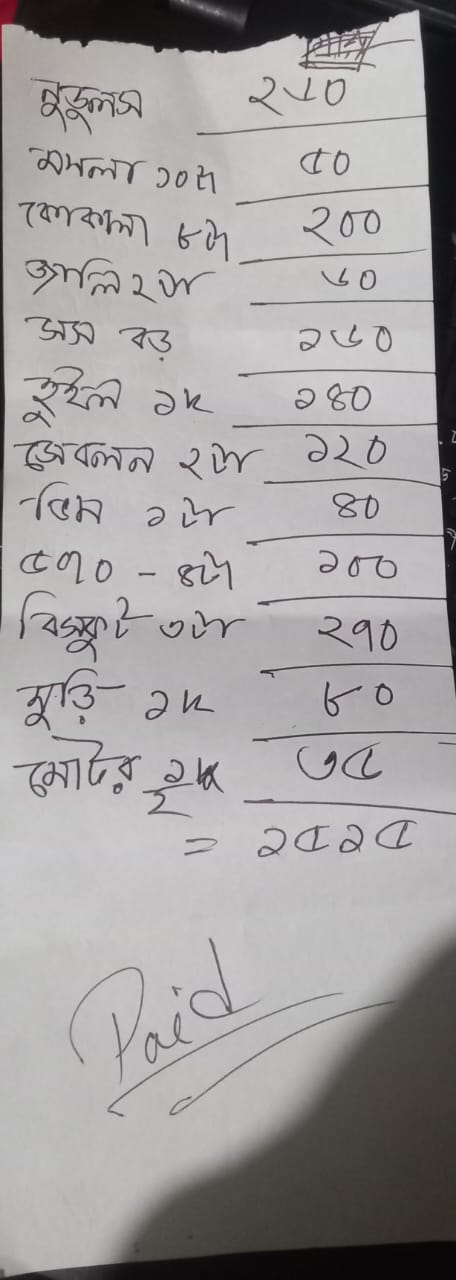 নুডুলস ২৬০
মসলা ১০টা ৫০
কোকলা ৮টা ২০০
জালি ২টা ৬০
সস বড় ১৬০
হুইল ১k ১৪০
সেবলন ২টা ১২০
ভিম ১টা ৪০
৫৭০ - ৪টা ১০০
বিস্কুট ৩টা ২৭০
মুড়ি ১k ৮০
মোটর ১/২k ৩৫
= ১৫১৫
Paid